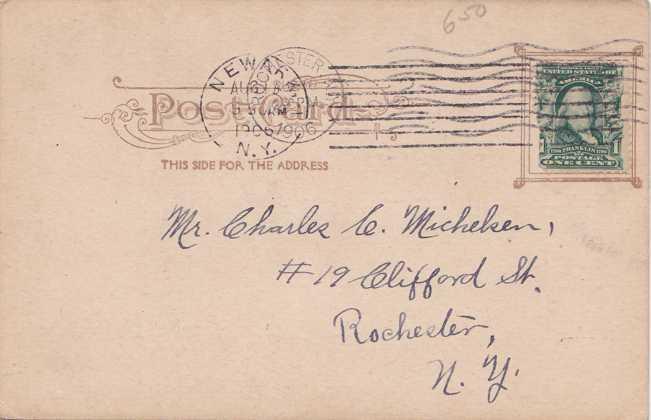 650
NEWARK
ROCHESTER
AUG
1906
1906
N.Y.
Post Card
THIS SIDE FOR THE ADDRESS
UNITED STATES OF
AMERICA
1 FRANKLIN 1
POSTAGE
ONE CENT
Mr. Charles C. Michelsen,
#19 Clifford St.
Rochester,
N. Y.